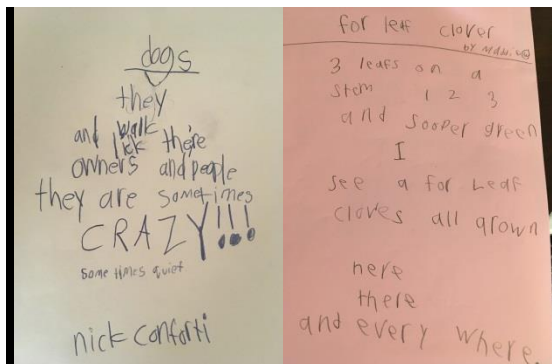 dogs
they
and walk
lick there
owners and people
they are sometimes
CRAZY!!!
some times quiet
nick conforti
for leaf clover
by
3 leafs on a
stem 1 2 3
and sooper green
I
see a for Leaf
cloves all grown
here
there
and every where.